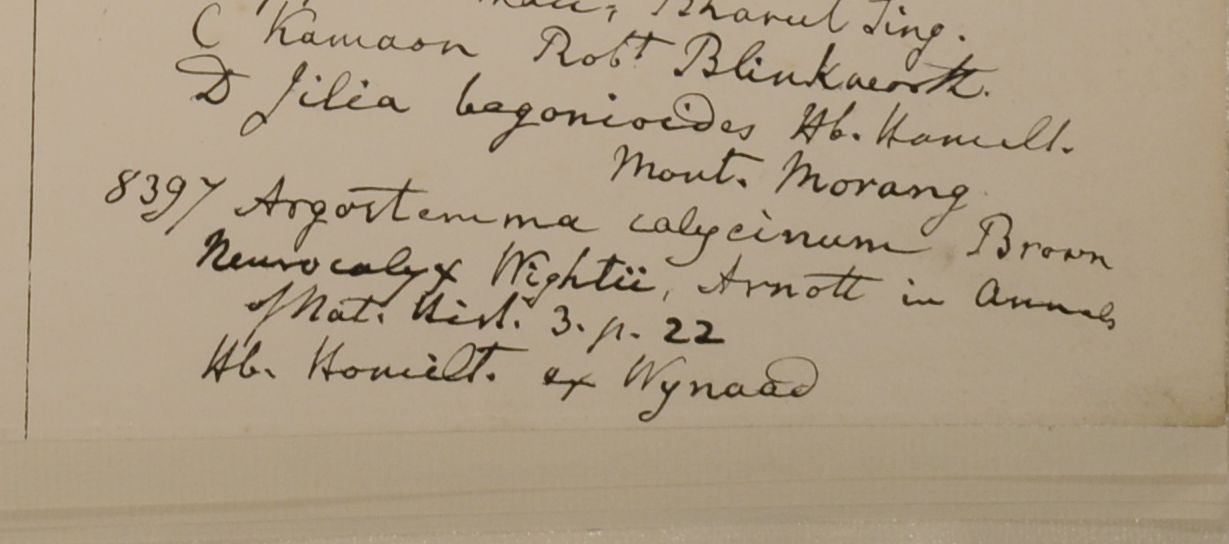 Bharut Sing.
C Kamaon Robt. Blinkworth.
D Jilia begonioides Hb. Hamilt.
Mont. Morang
8397 Argostemma calycinum Brown
Neurocalyx Wightii, Arnott in Annals
of Nat. Hist. 3. p. 22
Hb. Hamilt. ex Wynaad